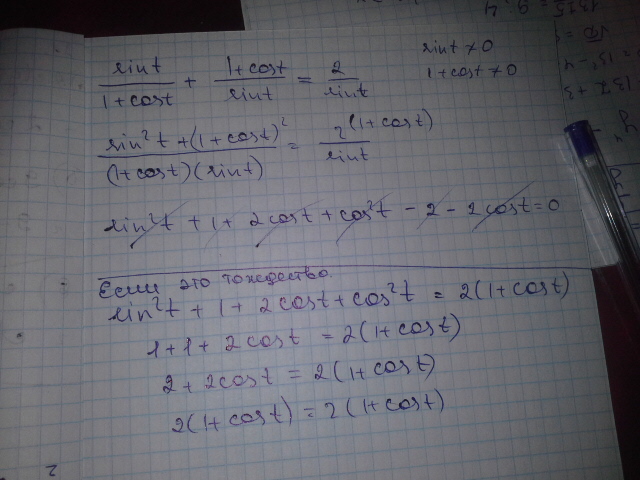 sint/(1+cost) + (1+cost)/sint = 2/sint
sint ≠ 0
1+cost ≠ 0
(sin²t + (1+cost)²)/((1+cost)(sint)) = 2(1+cost)/sint
sin²t + 1 + 2cost + cos²t - 2 - 2cost = 0
Если это тождество
sin²t + 1 + 2cost + cos²t = 2(1+cost)
1+1+2cost = 2(1+cost)
2+2cost = 2(1+cost)
2(1+cost) = 2(1+cost)